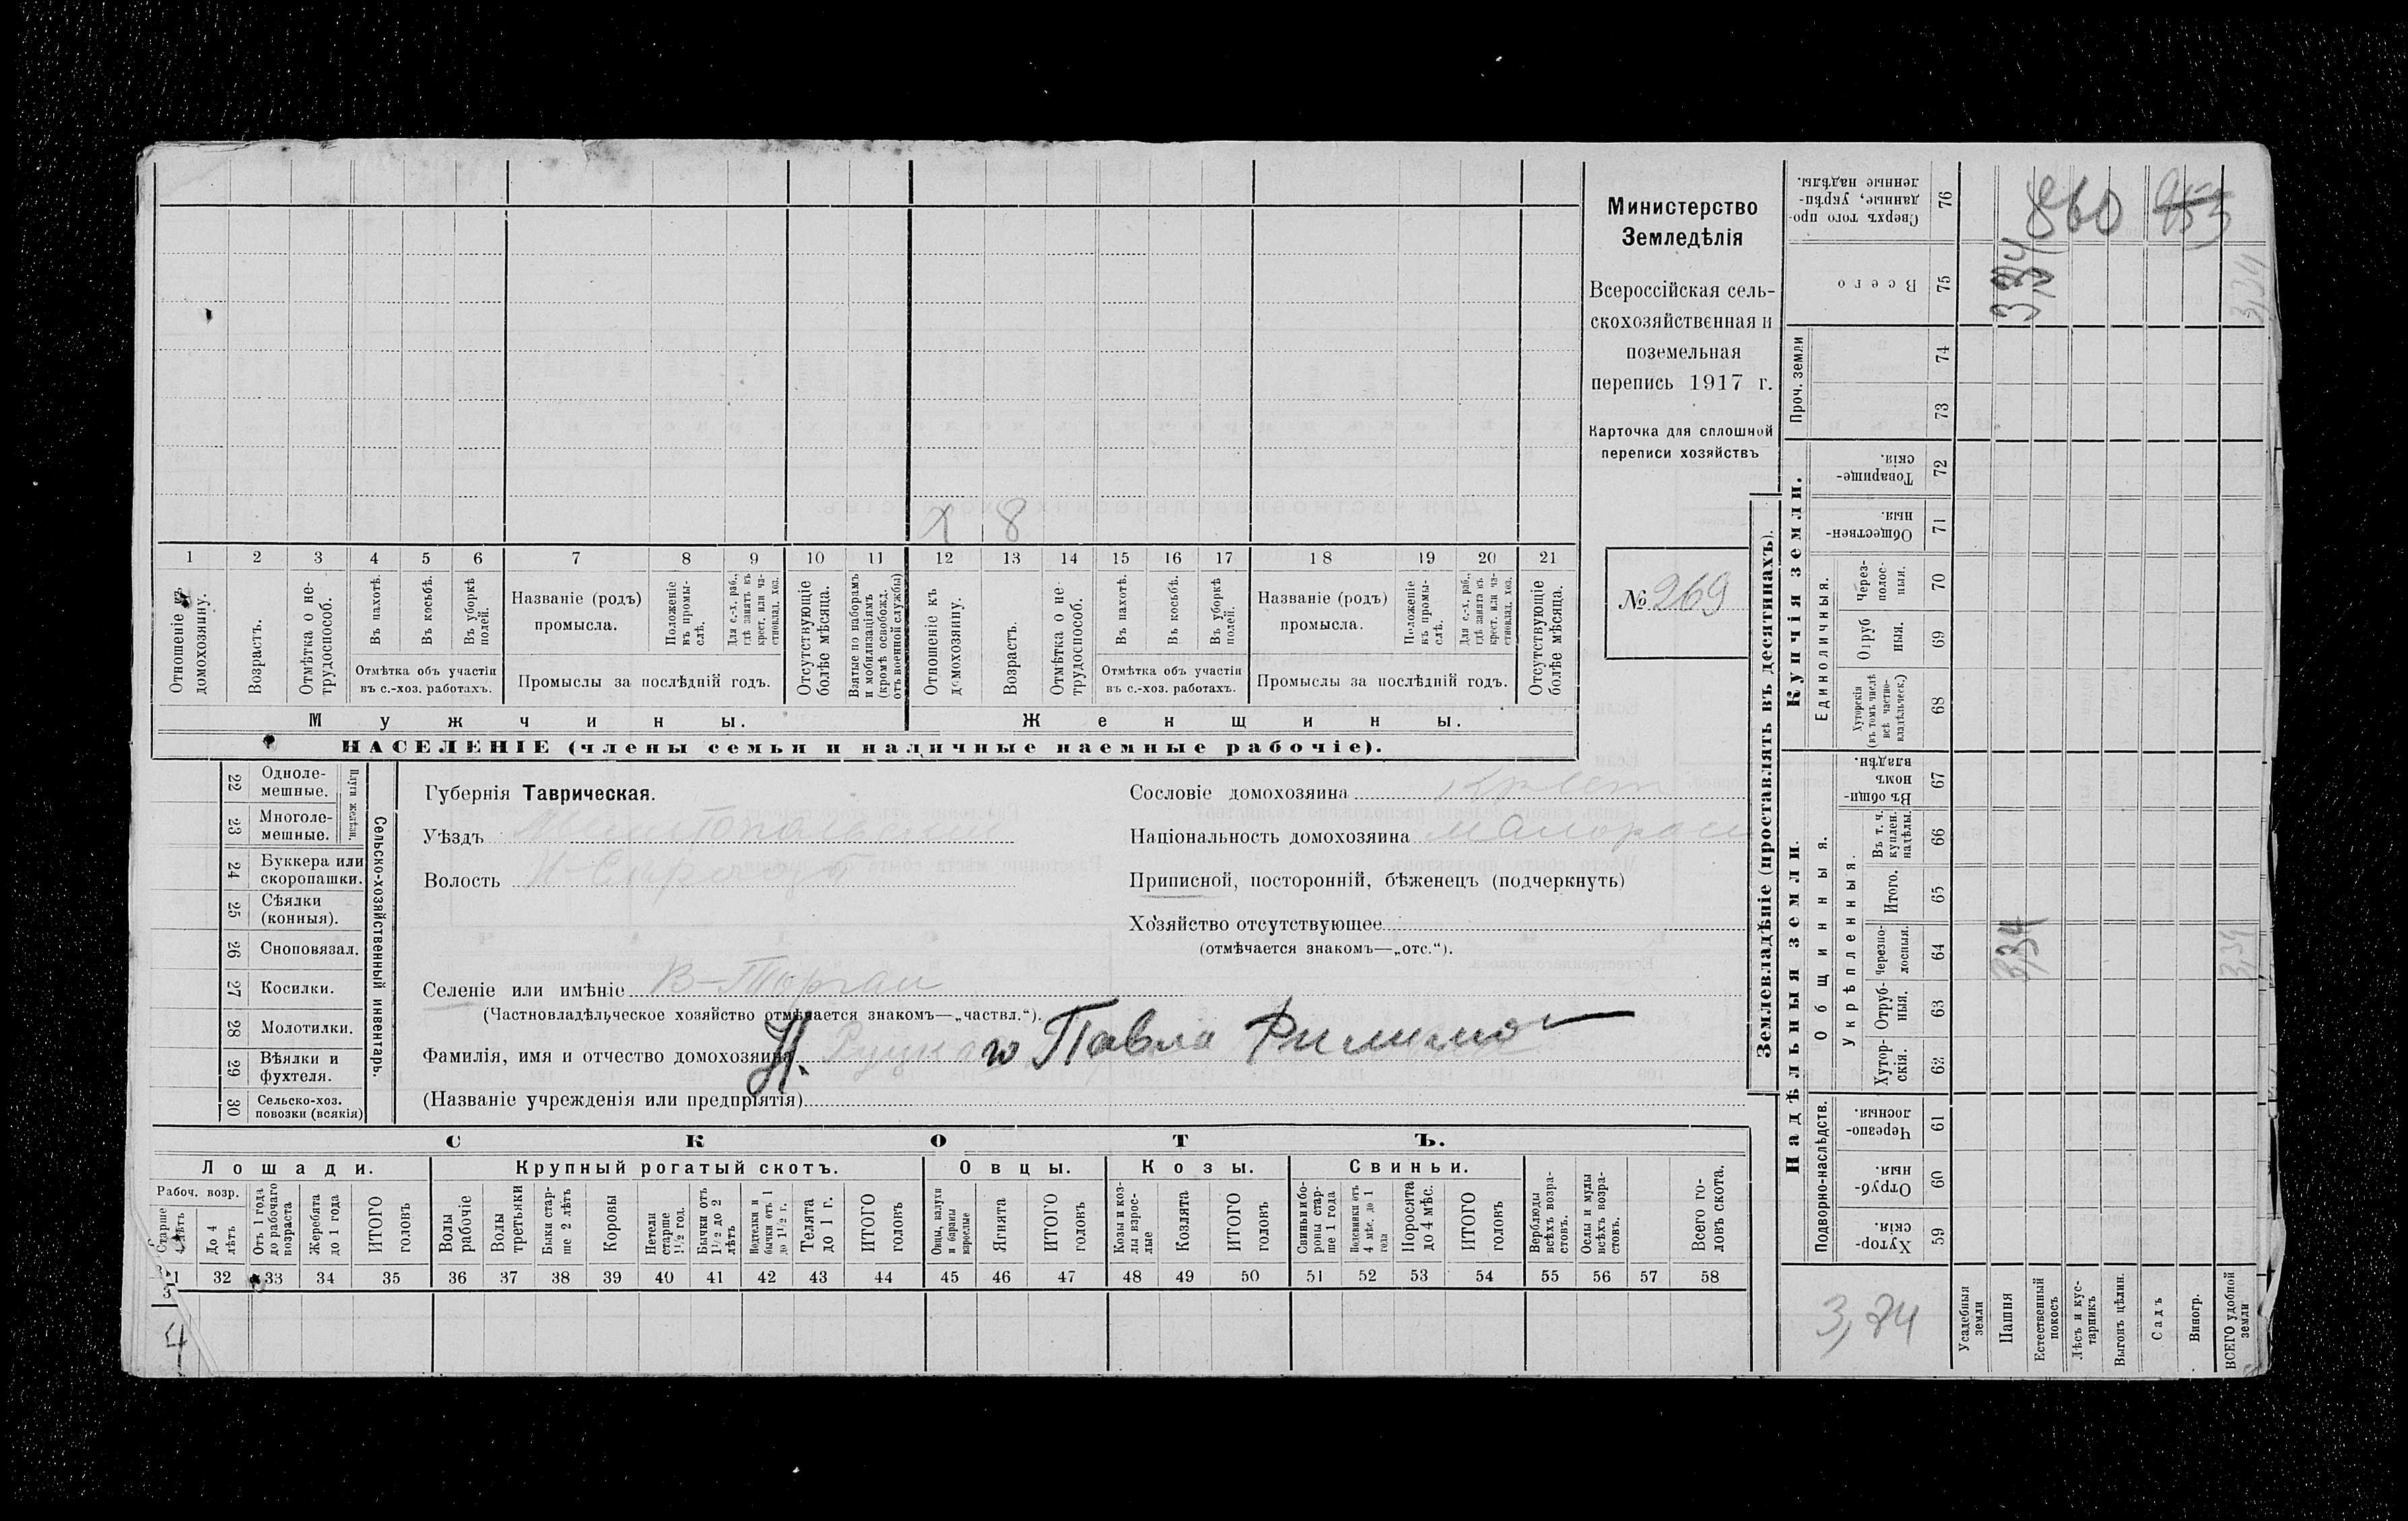 Министерство
Земледѣлія
Всероссійская сель-
скохозяйственная и
поземельная
перепись 1917 г.
Карточка для сплошной
переписи хозяйствъ
№ 269
х 8
1 2 3 4 5 6 7 8 9 10 11 12 13 14 15 16 17 18 19 20 21
Отношеніе къ домохозяину.
Возрастъ.
Отмѣтка о не-
трудоспособ.
Въ пахотѣ.
Въ косьбѣ.
Въ уборкѣ
полей.
Отмѣтка объ участіи
въ с.-хоз. работахъ.
Названіе (родъ)
промысла.
Положеніе
въ промы-
слѣ.
Для с.-х. раб.,
гдѣ занятъ въ
крест. или ча-
стновлад. хоз.
Промыслы за послѣдній годъ.
Отсутствующіе
болѣе мѣсяца.
Взятые по наборамъ
и мобилизаціямъ
(кромѣ освобожд.
отъ военной службы)
Отношеніе къ
домохозяину.
Возрастъ.
Отмѣтка о не-
трудоспособ.
Въ пахотѣ.
Въ косьбѣ.
Въ уборкѣ
полей.
Отмѣтка объ участіи
въ с.-хоз. работахъ.
Названіе (родъ)
промысла.
Положеніе
въ промы-
слѣ.
Для с.-х. раб.,
гдѣ занята въ
крест. или ча-
стновлад. хоз.
Промыслы за послѣдній годъ.
Отсутствующіе
болѣе мѣсяца.
Мужчины.
Женщины.
НАСЕЛЕНІЕ (члены семьи и наличные наемные рабочіе).
22 Одноле-
мешные.
23 Многоле-
мешные.
Плуги желѣзн.
24 Буккера или
скоропашки.
25 Сѣялки
(конныя).
26 Сноповязал.
27 Косилки.
28 Молотилки.
29 Вѣялки и
фухтеля.
30 Сельско-хоз.
повозки (всякія)
Сельско-хозяйственный инвентарь.
Губернія Таврическая.
Уѣздъ Мелитопольскій
Волость
Селеніе или имѣніе В-Торгаи
(Частновладѣльческое хозяйство отмѣчается знакомъ—„частвл.“).
Фамилія, имя и отчество домохозяина Павла
(Названіе учрежденія или предпріятія)
Сословіе домохозяина крест
Національность домохозяина малорос
Приписной, посторонній, бѣженецъ (подчеркнуть)
Хозяйство отсутствующее
(отмѣчается знакомъ—„отс.“).
СКОТЪ.
Лошади.
Рабоч. возр.
Старше
4 лѣтъ
До 4
лѣтъ
Отъ 1 года
до рабочаго
возраста
Жеребята
до 1 года
ИТОГО
головъ
Крупный рогатый скотъ.
Волы
рабочіе
Волы
третьяки
Быки стар-
ше 2 лѣтъ
Коровы
Нетели
старше
1½ год.
Бычки отъ
1½ до 2
лѣтъ
Подтелки и
бычки отъ 1
до 1½ г.
Телята
до 1 г.
ИТОГО
головъ
Овцы.
Овцы, валухи
и бараны
взрослые
Ягнята
ИТОГО
головъ
Козы.
Козы и коз-
лы взрос-
лые
Козлята
ИТОГО
головъ
Свиньи.
Свиньи и бо-
ровы стар-
ше 1 года
Подсвинки отъ
4 мѣс. до 1
года
Поросята
до 4 мѣс.
ИТОГО
головъ
Верблюды
всѣхъ возра-
стовъ.
Ослы и мулы
всѣхъ возра-
стовъ.
Всего го-
ловъ скота.
32 33 34 35 36 37 38 39 40 41 42 43 44 45 46 47 48 49 50 51 52 53 54 55 56 57 58
Землевладѣніе (проставлять въ десятинахъ).
Купчія земли.
Надѣльныя земли.
Сверхъ того про-
данные, укрѣп-
ленные надѣлы. 76
Всего 75
Проч. земли
74
73
Товарище-
скія. 72
Обществен-
ныя. 71
Единоличныя.
Через-
полос-
ныя. 70
Отруб
ныя. 69
Хуторскія
(въ томъ числѣ
всѣ частно-
владѣльческ.) 68
Общинныя.
Въ общи-
номъ
владѣн. 67
Укрѣпленныя.
Въ т. ч.
куплен.
надѣлы. 66
Итого. 65
Черезпо-
лосныя. 64
Отруб-
ныя. 63
Хутор-
скія. 62
Подворно-наслѣдств.
Черезпо-
лосныя. 61
Отруб-
ныя. 60
Хутор-
скія. 59
Усадебныя
земли
Пашня
Естественный
покосъ
Лѣсъ и кус-
тарникъ
Выгонъ цѣлин.
Садъ
Виногр.
ВСЕГО удобной
земли
860
3,34
3,34
3,34